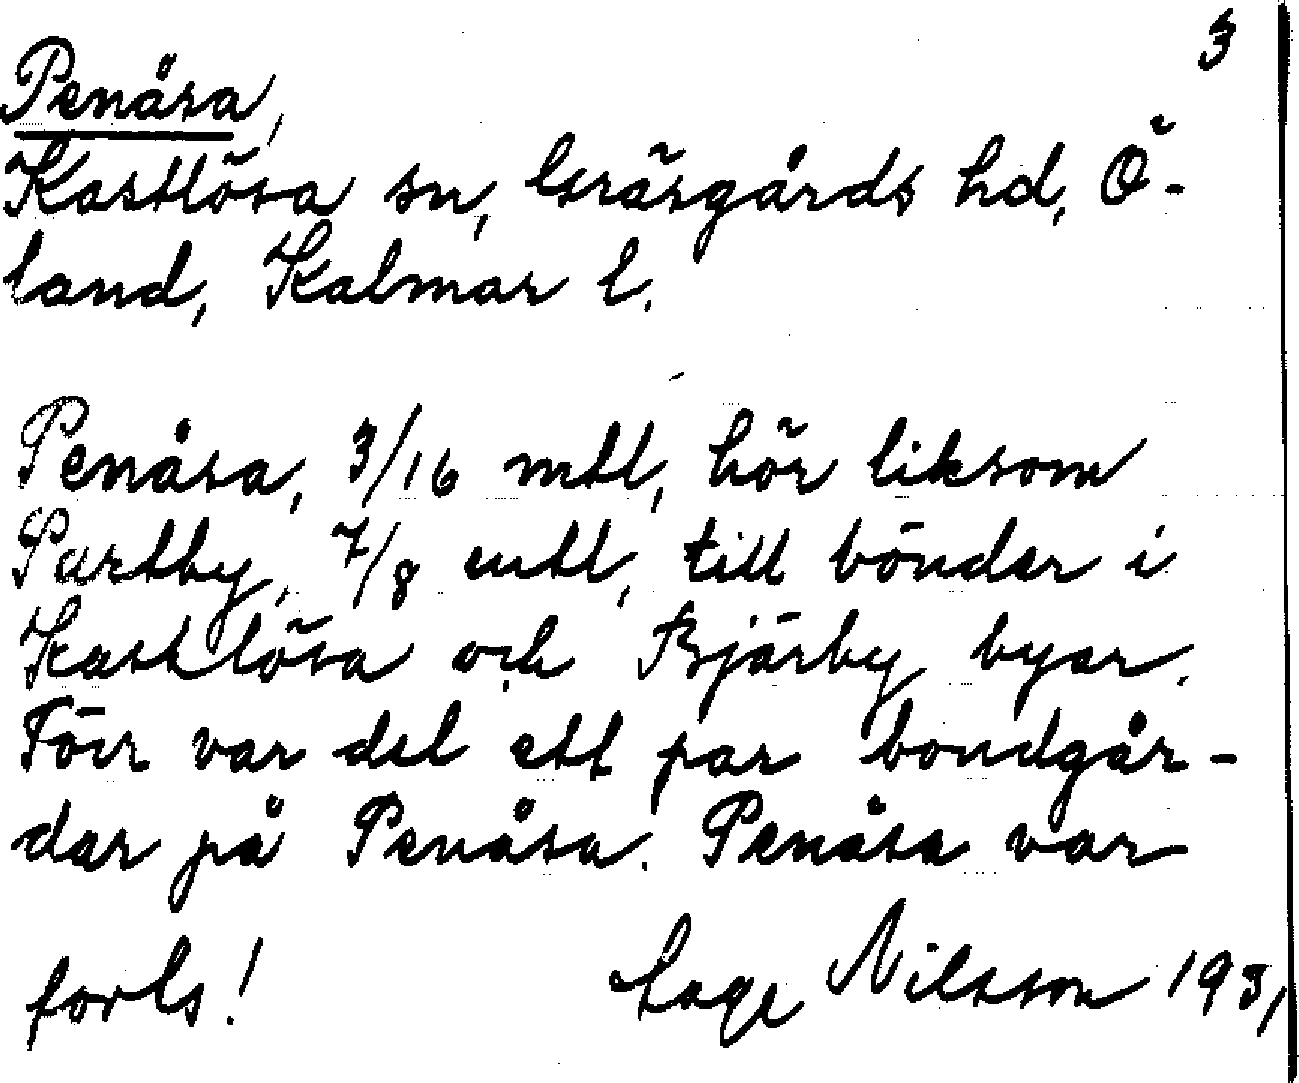 3
Penåsa,
Kastlösa sn, Gräsgårds hd, Ö-
land, Kalmar l.
Penåsa, 3/16 mtl, hör liksom
Partby, 7/8 mtl, till bönder i
Kastlösa och Bjärby byar.
Förr var det ett par bondgår-
dar på Penåsa. Penåsa var
forts! Lage Nilsson 1931